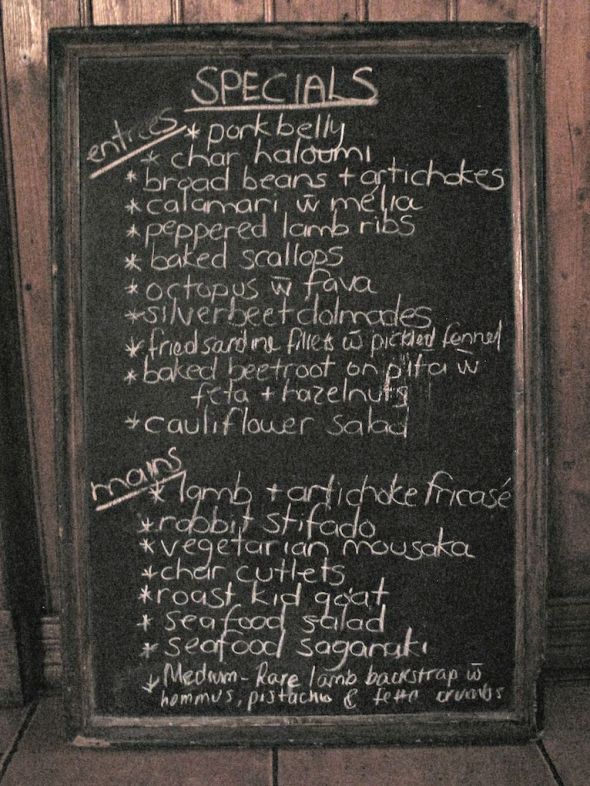 SPECIALS
entrees
* pork belly
* char haloumi
* broad beans + artichokes
* calamari w̄ melia
* peppered lamb ribs
* baked scallops
* octopus w̄ fava
* silverbeet dolmades
* fried sardine fillets w̄ pickled fennel
* baked beetroot on pita w̄
feta + hazelnuts
* cauliflower salad
mains
* lamb + artichoke fricasé
* rabbit stifado
* vegetarian mousaka
* char cutlets
* roast kid goat
* seafood salad
* seafood saganaki
* Medium-Rare lamb backstrap w̄
hommus, pistachio & feta crumbs